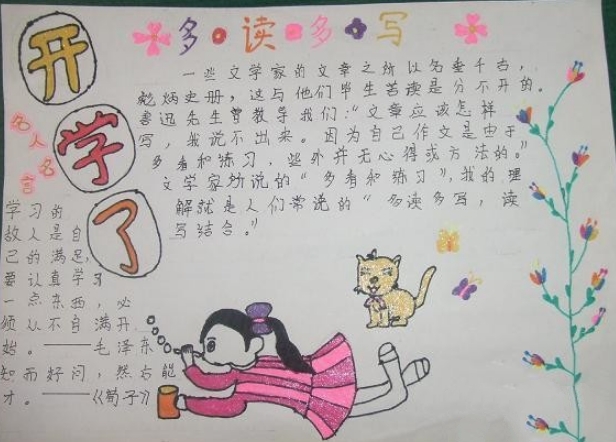 开
学
了
多读多写
名人名言
一些文学家的文章之所以名垂千古，
彪炳史册，这与他们毕生苦读是分不开的。
鲁迅先生曾教导我们：“文章应该怎样
写，我说不出来。因为自己作文是由于
多看和练习，此外并无心得或方法的。”
文学家所说的“多看和练习”，我的理
解就是人们常说的“多读多写，读
写结合。”
学习的
敌人是自
己的满足，
要认真学习
一点东西，必
须从不自满开
始。——毛泽东
知而好问，然后能
才。——《荀子》